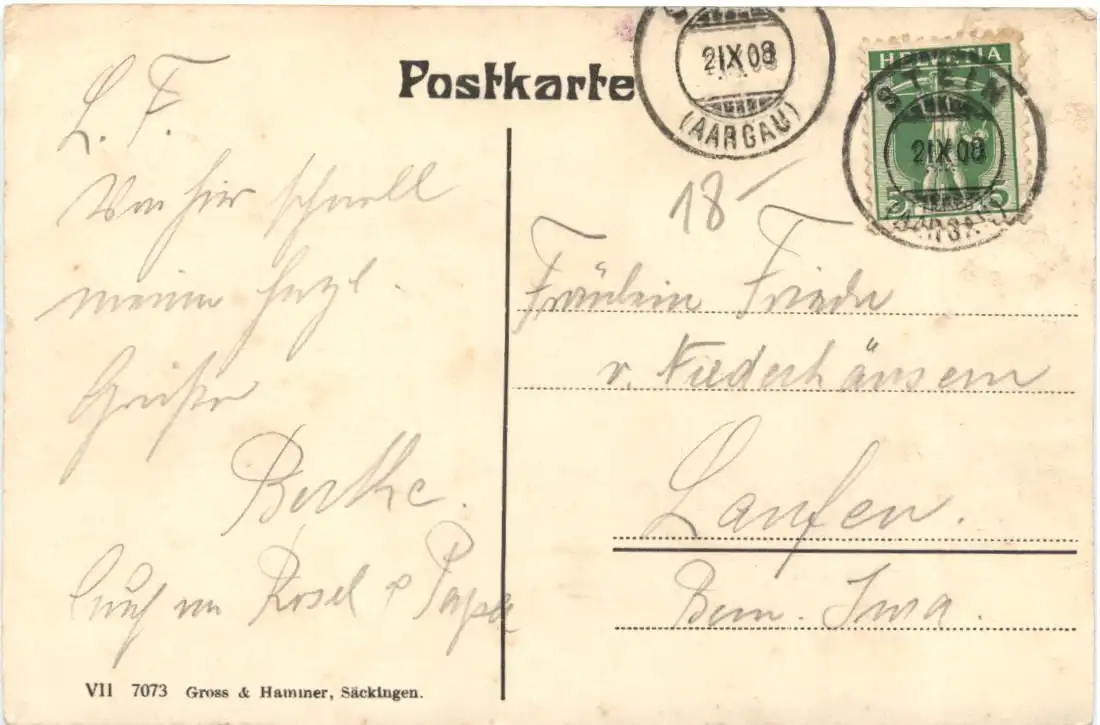 Postkarte
21X08
(AARGAU)
HELVETIA
5 5
STEIN
21X08
(AARGAU)
18
L. F.
Von hier schnell
meine herzl.
Grüsse
Berthe.
Auch an Rosel & Papa
Fräulein Frieda
v. Niederhäusern
Laufen.
Bern. Jura.
VII 7073 Gross & Hammer, Säckingen.